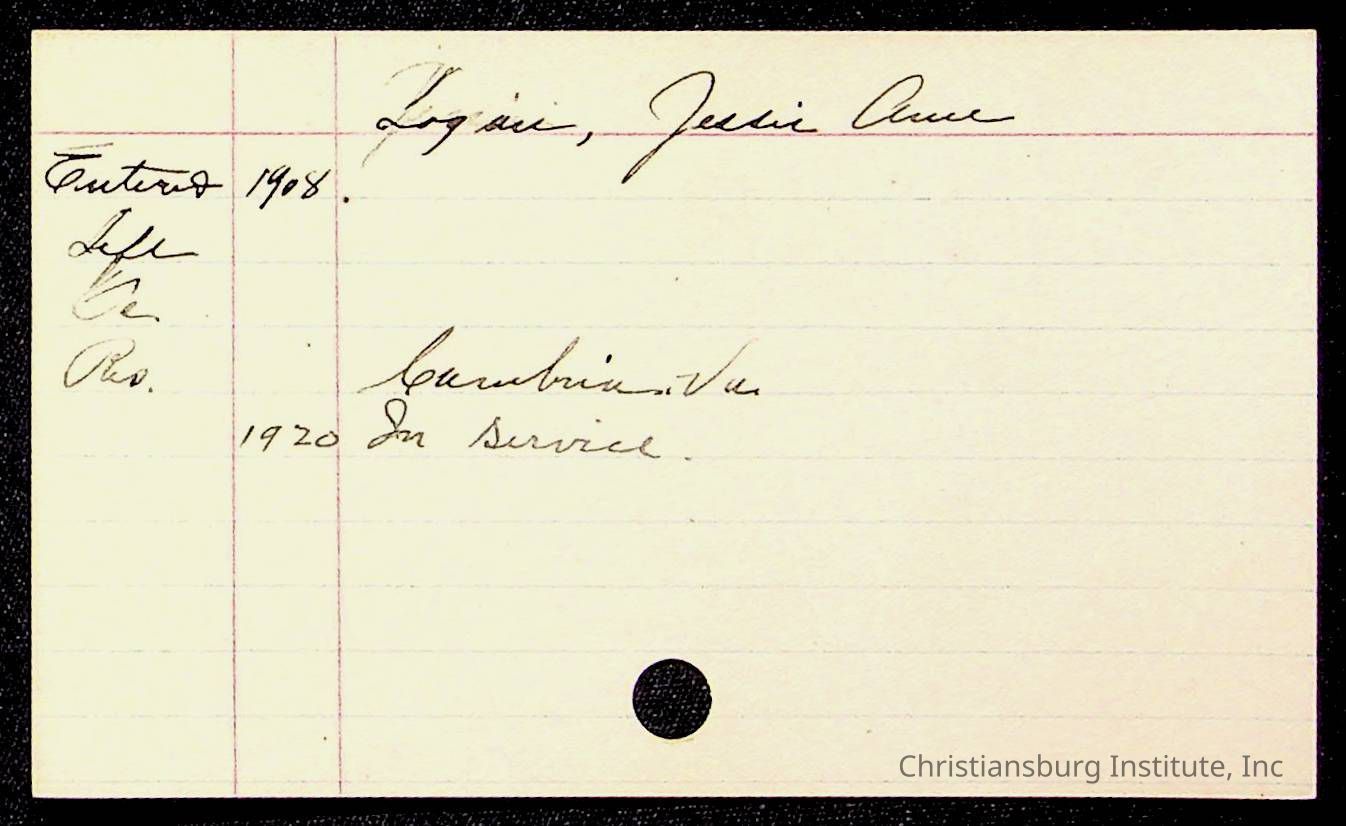 Logan, Jessie Anne
Entered 1908.
Left
Oc.
Res. Cambria. Va.
1920 In service.
Christiansburg Institute, Inc